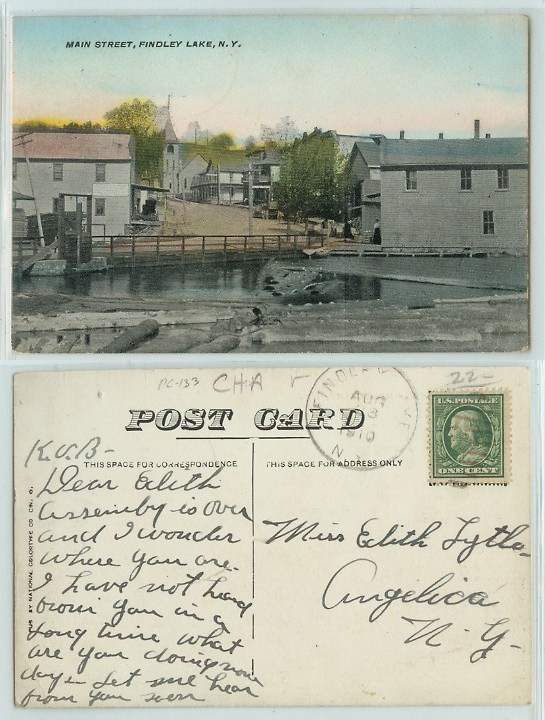 MAIN STREET, FINDLEY LAKE, N.Y.
PC-133 CHA 22-
FINDLEY LAKE
AUG
1910
N.Y.
U.S. POSTAGE
ONE CENT
POST CARD
THIS SPACE FOR CORRESPONDENCE
THIS SPACE FOR ADDRESS ONLY
K.U.B-
Dear Edith
Assembly is over
and I wonder
where you are.
I have not heard
from you in a
long time what
are you doing now
days - Let me hear
from you soon
Miss Edith Lytle
Angelica
N-Y-
PUB BY NATIONAL COLORTYPE CO CIN. O.